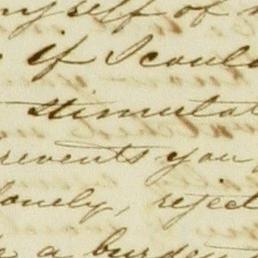 myself of
if I could
stimulat
revents you
lonely, reject
a burden